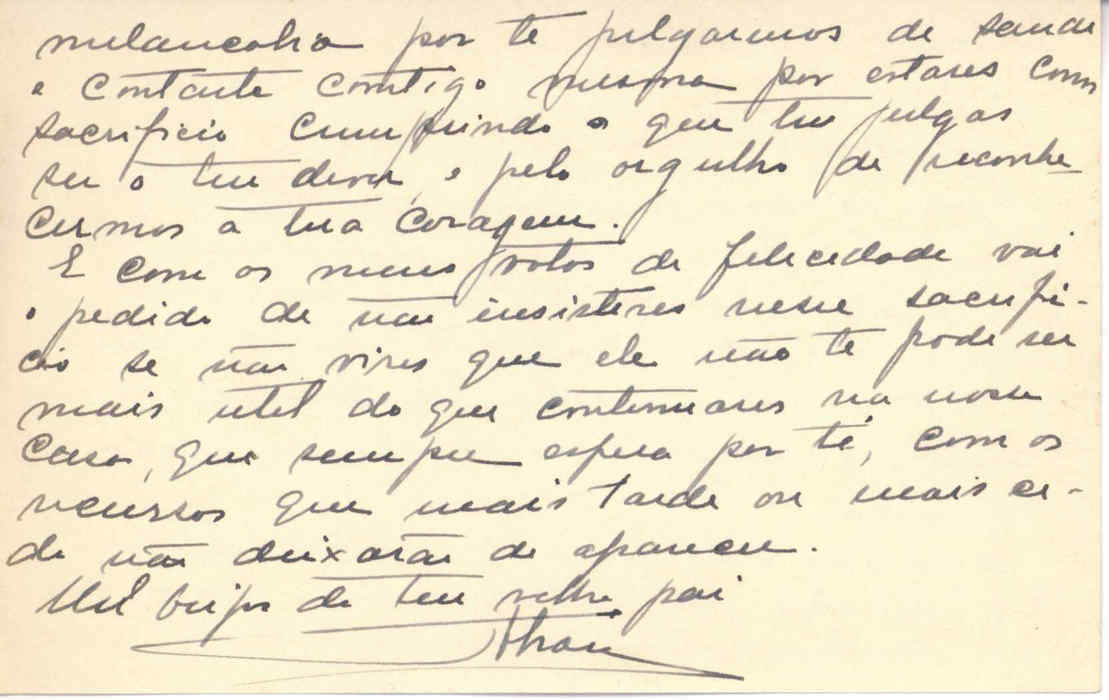 melancolia por te julgarmos de saude
e contente comtigo mesma por estares com
sacrificio cumprindo o que tu julgas
ser o teu dever, e pelo orgulho de reconhe-
cermos a tua coragem.
E com os meus votos de felicidade vai
o pedido de não insisteres nesse sacrifi-
cio se não vires que ele não te pode ser
mais util do que continuares na nossa
casa, que sempre espera por ti, com os
recursos que mais tarde ou mais ce-
do não deixarão de aparecer.
Mil beijos do teu velho pai